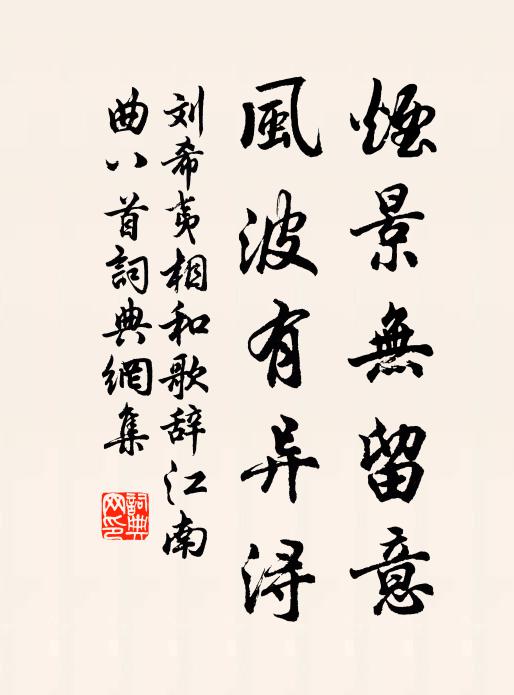 煙景無留意
風波有异浔
刘希夷相和歌辞江南
曲八首詞典網集
詞典網印